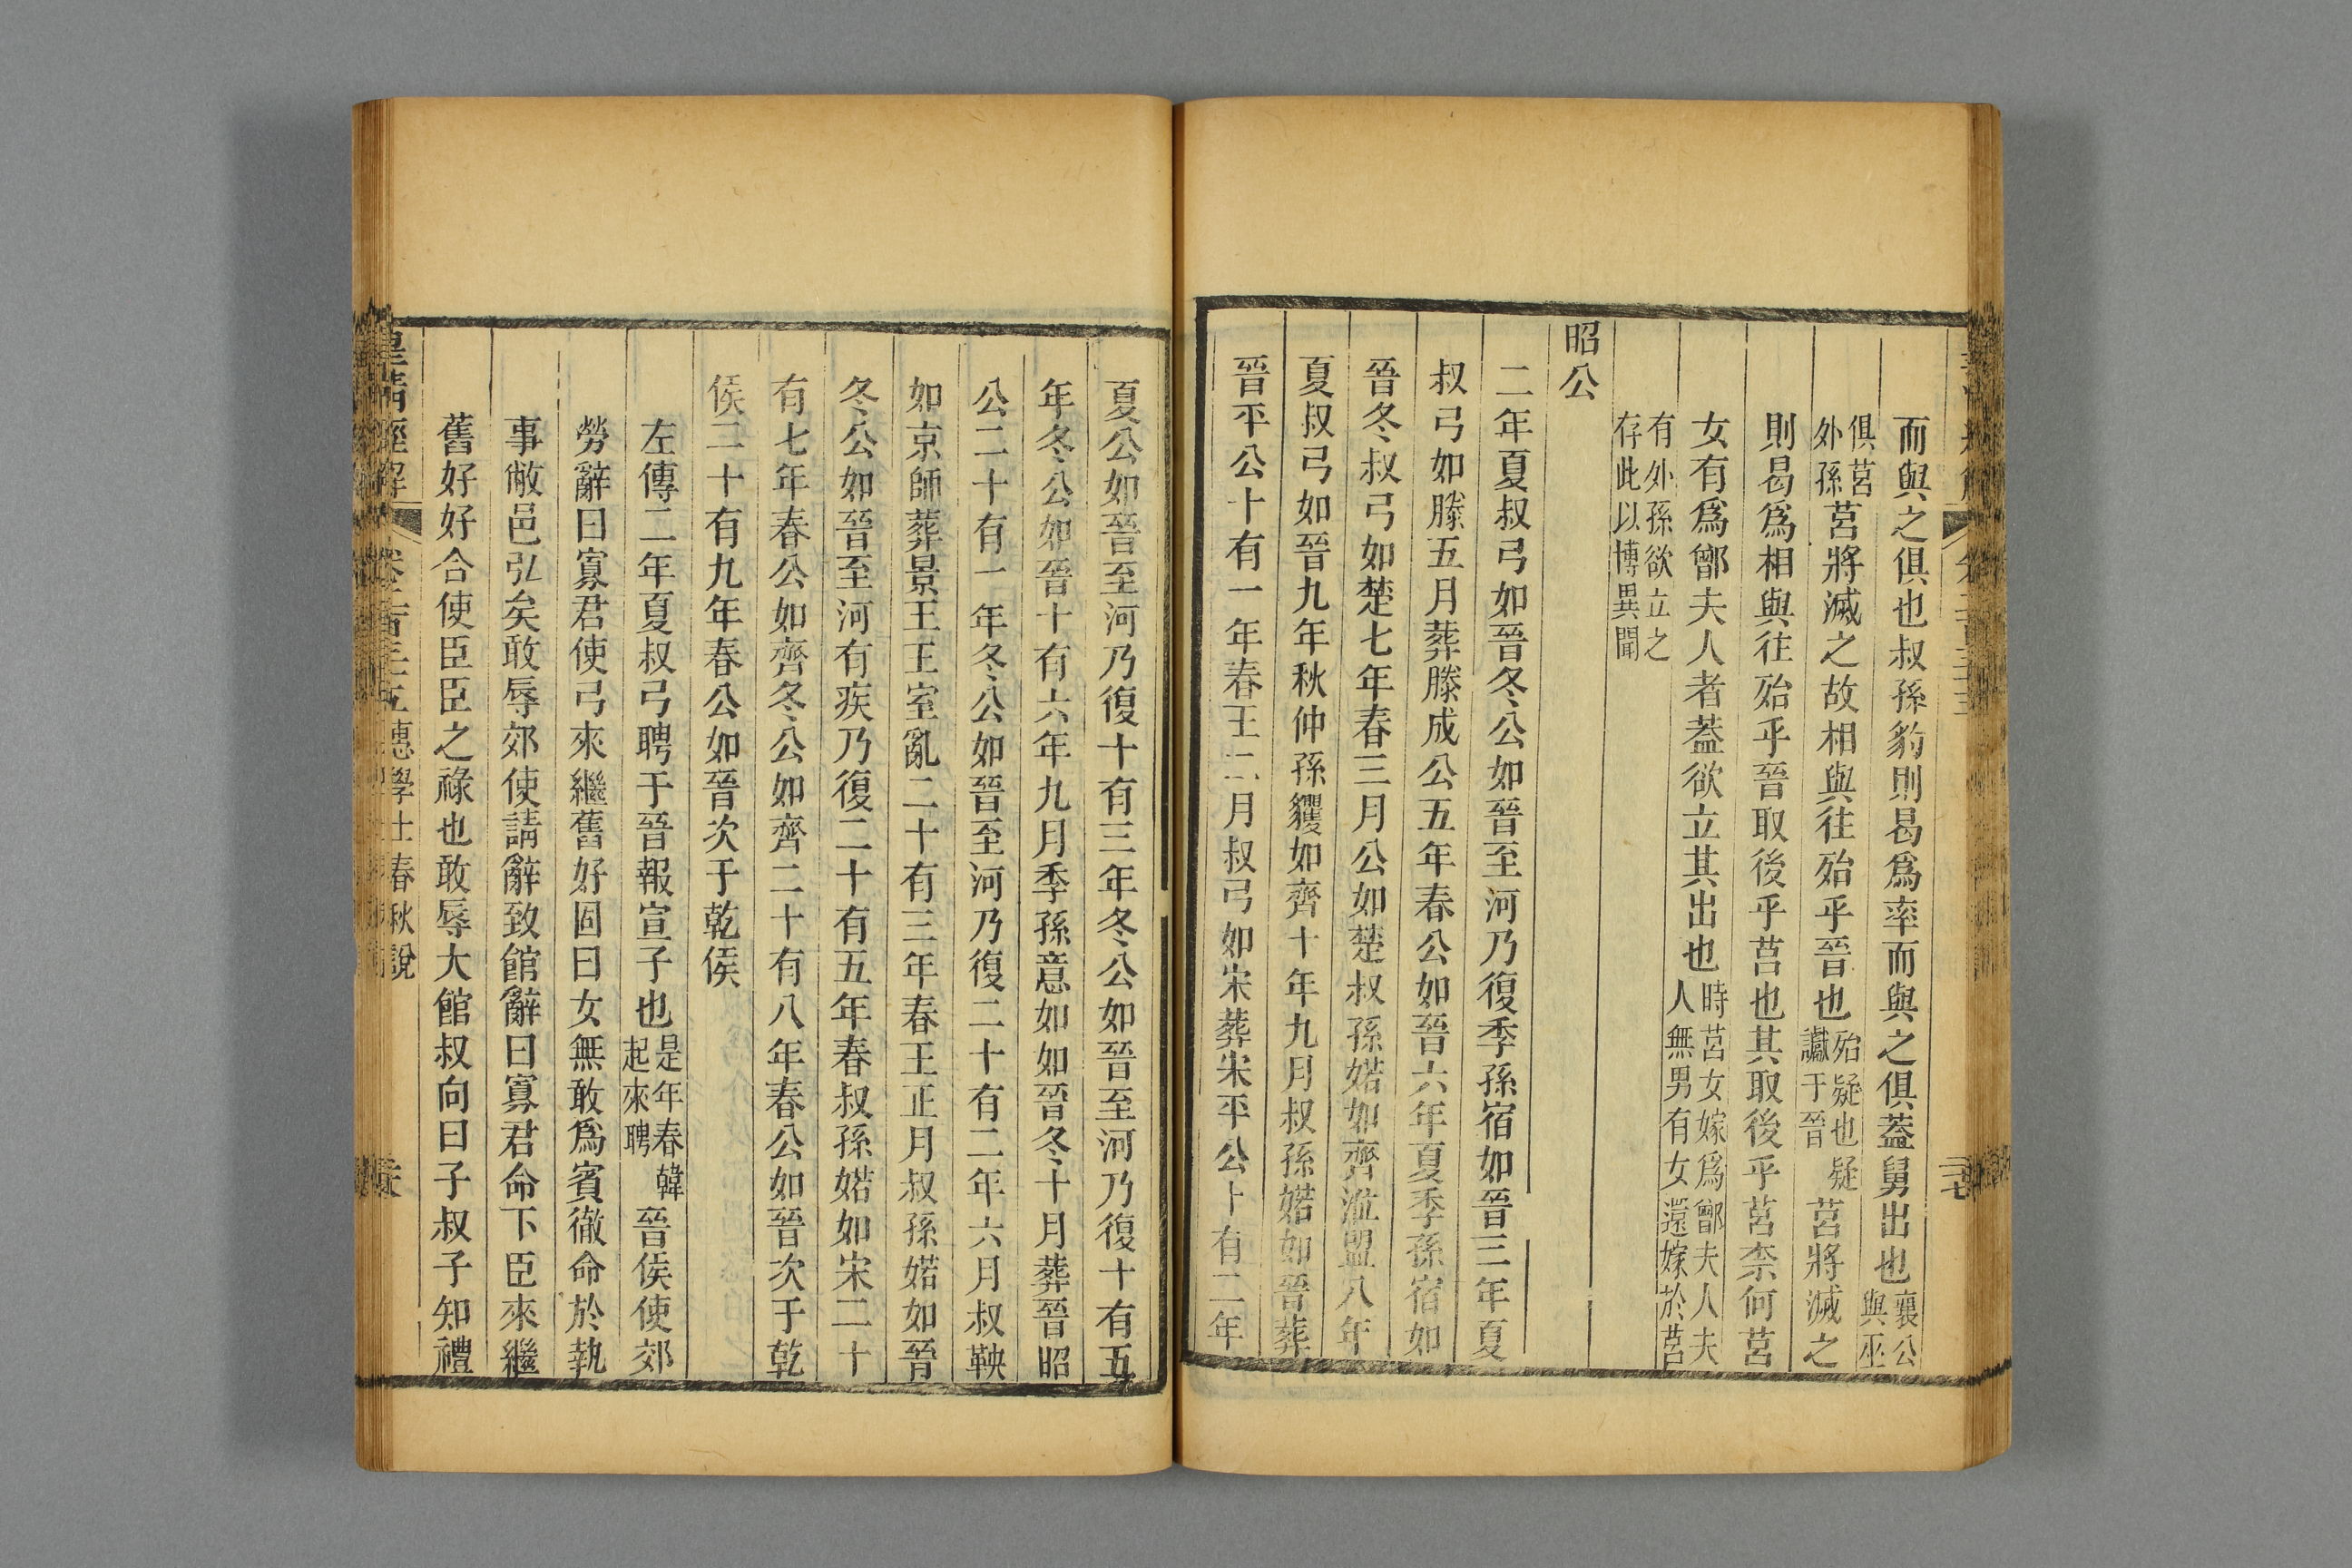 而與之俱也叔孫豹則曷爲率而與之俱蓋舅出也襄公與巫
俱莒外孫莒將滅之故相與往殆乎晉也殆疑也疑讞于晉莒將滅之
則曷爲相與往殆乎晉取後乎莒也其取後乎莒柰何莒
女有爲鄫夫人者蓋欲立其出也時莒女嫁爲鄫夫人夫人無男有女還嫁於莒
有外孫欲立之存此以博異聞
昭公
二年夏叔弓如晉冬公如晉至河乃復季孫宿如晉三年夏
叔弓如滕五月葬滕成公五年春公如晉六年夏季孫宿如
晉冬叔弓如楚七年春三月公如楚叔孫婼如齊涖盟八年
夏叔弓如晉九年秋仲孫貜如齊十年九月叔孫婼如晉葬
晉平公十有一年春王二月叔弓如宋葬宋平公十有二年
夏公如晉至河乃復十有三年冬公如晉至河乃復十有五
年冬公如晉十有六年九月季孫意如如晉冬十月葬晉昭
公二十有一年冬公如晉至河乃復二十有二年六月叔鞅
如京師葬景王王室亂二十有三年春王正月叔孫婼如晉
冬公如晉至河有疾乃復二十有五年春叔孫婼如宋二十
有七年春公如齊冬公如齊二十有八年春公如晉次于乾
侯二十有九年春公如晉次于乾侯
左傳二年夏叔弓聘于晉報宣子也是年春韓起來聘晉侯使郊
勞辭曰寡君使弓來繼舊好固曰女無敢爲賓徹命於執
事敝邑弘矣敢辱郊使請辭致館辭曰寡君命下臣來繼
舊好好合使臣臣之祿也敢辱大館叔向曰子叔子知禮
皇清經解 惠學士春秋說